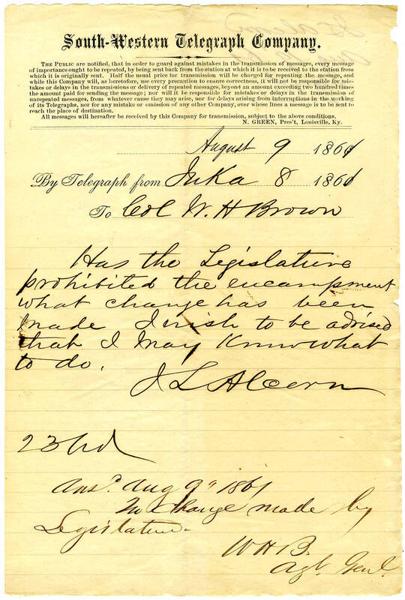 South-Western Telegraph Company.
THE PUBLIC are notified, that in order to guard against mistakes in the transmission of messages, every message
of importance ought to be repeated, by being sent back from the station at which it is to be received to the station from
which it is originally sent. Half the usual price for transmission will be charged for repeating the message, and
while this Company will, as heretofore, use every precaution to ensure correctness, it will not be responsible for mis-
takes or delays in the transmission or delivery of repeated messages, beyond an amount exceeding two hundred times
the amount paid for sending the message; nor will it be responsible for mistakes or delays in the transmission of
unrepeated messages, from whatever cause they may arise, nor for delays arising from interruptions in the working
of its Telegraphs, nor for any mistake or omission of any other Company, over whose lines a message is to be sent to
reach the place of destination.
All messages will hereafter be received by this Company for transmission, subject to the above conditions.
N. GREEN, Pres't, Louisville, Ky.
August 9 1861
By Telegraph from Iuka 8 1861
To Col W. H Brown
Has the Legislature
prohibited the encampment
what change has been
made I wish to be advised
that I may Know what
to do.
J L Alcorn
23 pd
Ansd. Aug 9th 1861
No change made by
Legislature.
W H B.
Agt. Genl.